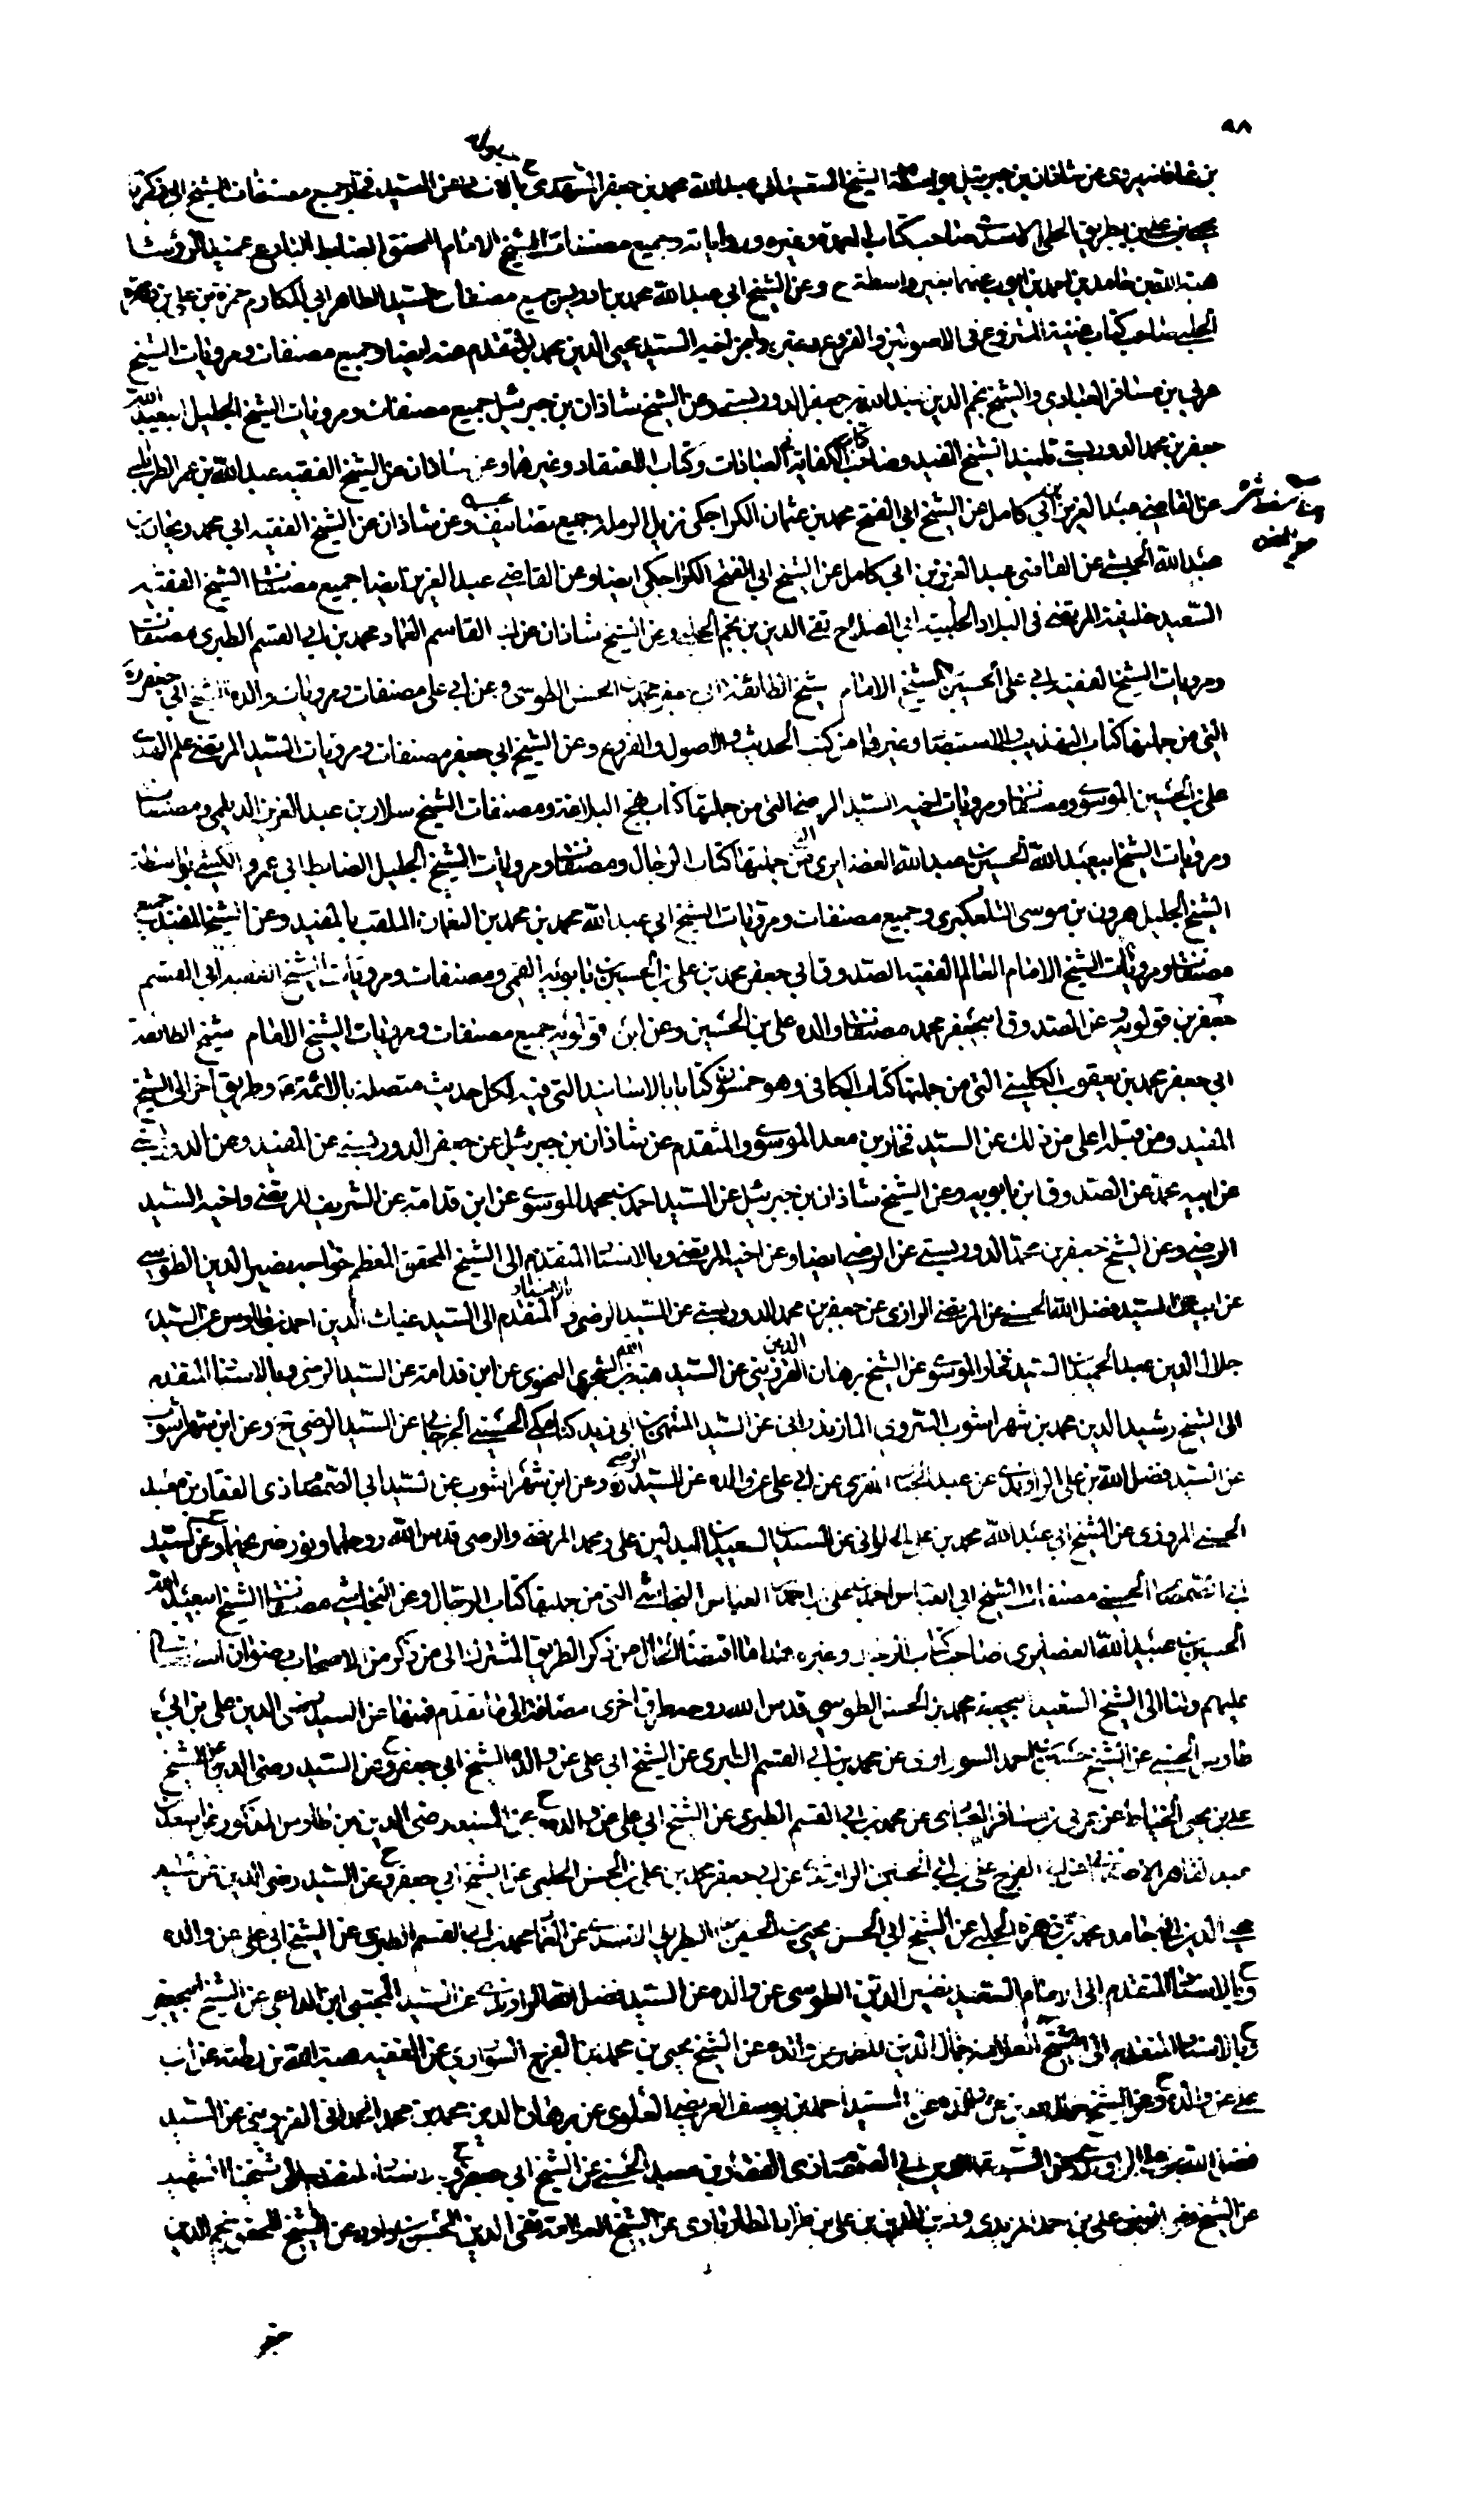 ٩٨
بن شاذان بن جبرئيل بواسطة الشيخ السعيد ابي عبد الله محمد بن جعفر المشهدي ح وبالاسناد عن السيد فخار جميع مصنفات الشيخ ابي زكريا
يحيى بن علي بن بطريق الحلي الاسدي صاحب كتاب العمدة وغيره ورواياته وجميع مصنفات الشيخ الامام المحقق الضابط البارع عميد الرؤسا
هبة الله بن حامد بن احمد بن ايوب عنهما بغير واسطة ح وعن الشيخ ابي عبد الله محمد بن ادريس جميع مصنفات السيد الطاهر ابي المكارم حمزة بن علي بن زهرة
الحلبي صاحب كتاب غنية النزوع في الاصولين والفروع وغيره وعن اخيه السيد محيي الدين محمد المتقدم عنه ايضا وجميع مصنفات ومرويات الشيخ
عربي بن مسافر العبادي والشيخ نجم الدين عبد الله بن جعفر الدوريستي وعن الشيخ شاذان بن جبرئيل جميع مصنفات ومرويات الشيخ الجليل ابيعبد الله
جعفر بن محمد الدوريستي تلميذ الشيخ المفيد وصاحب كتاب الكفاية في العبادات وكتاب الاعتقاد وغيرهما وعن شاذان عن الشيخ الفقيه عبد الله بن عمر الطرابلسي
عن القاضي عبد العزيز بن ابي كامل عن الشيخ ابي الفتح محمد بن عثمان الكراجكي نزيل الرملة جميع تصانيفه وعن شاذان عن الشيخ الفقيه ابي محمد ريحان بن
عبد الله الحبشي عن القاضي عبد العزيز بن ابي كامل عن الشيخ ابي الفتح الكراجكي ايضا وعن القاضي عبد العزيز ايضا جميع مصنفات الشيخ الفقيه
السعيد خليفة المرتضى في البلاد الحلبية ابي الصلاح تقي الدين بن نجم الحلبي وعن الشيخ شاذان عن ابي القاسم العماد محمد بن ابي القسم الطبري مصنفات
ومرويات الشيخ الفقيه ابي علي الحسن بن الشيخ الامام شيخ الطائفة ابي جعفر محمد بن الحسن الطوسي وعن ابي علي مصنفات ومرويات والده الشيخ ابي جعفر
التي من جملتها كتاب التهذيب والاستبصار وغيرهما من كتب الحديث والاصول والفروع وعن الشيخ ابي جعفر مصنفات ومرويات السيد المرتضى علم الهدى
علي بن الحسين الموسوي ومصنفات ومرويات اخيه السيد الرضي التي من جملتها كتاب نهج البلاغة ومصنفات الشيخ سلار بن عبد العزيز الديلمي ومصنفات
ومرويات الشيخ ابيعبد الله الحسين بن عبيد الله الغضايري التي من جملتها كتاب الرجال ومصنفات ومرويات الشيخ الجليل الضابط ابي عمرو الكشي بواسطة
الشيخ الجليل هرون بن موسى التلعكبري وجميع مصنفات ومرويات الشيخ ابي عبد الله محمد بن محمد بن النعمان الملقب بالمفيد وعن الشيخ المفيد جميع
مصنفات ومرويات الشيخ الامام العالم الفقيه الصدوق ابي جعفر محمد بن علي بن الحسين بن بابويه القمي ومصنفات ومرويات الشيخ الفقيه ابي القسم
جعفر بن قولويه وعن الصدوق ابيجعفر محمد مصنفات والده علي بن الحسين وعن ابن قولويه جميع مصنفات ومرويات الشيخ الامام شيخ الطائفة
ابي جعفر محمد بن يعقوب الكليني التي من جملتها كتاب الكافي وهو خمسون كتابا بالاسانيد التي فيه لكل حديث متصلة بالائمة وطريق اخر الى الشيخ
المفيد ومن قبله اعلى من ذلك عن السيد فخار بن معد الموسوي والمتقدم عن شاذان بن جبرئيل عن جعفر الدوريستي عن المفيد وعن الدوريستي
عن ابيه محمد عن الصدوق ابن بابويه وعن الشيخ شاذان بن جبرئيل عن السيد احمد بن محمد الموسوي عن ابن قدامة عن الشريف المرتضى واخيه السيد
الرضي وعن الشيخ جعفر بن محمد الدوريستي عن الرضي ايضا وعن اخيه المرتضى وبالاسناد المتقدم الى الشيخ المحقق المعظم خواجه نصير الدين الطوسي
عن ابيه عن السيد فضل الله الحسني عن المرتضى الرازي عن جعفر بن محمد الدوريستي عن السيد الرضي وبالاسناد المتقدم الى السيد غياث الدين احمد بن طاوس عن السيد
جلال الدين عبد الحميد بن السيد فخار الموسوي عن الشيخ برهان الدين القزويني عن السيد هبة الله الشجري النحوي عن ابن قدامة عن السيد الرضي وبالاسناد المتقدم
الى الشيخ رشيد الدين محمد بن شهراشوب السروي المازندراني عن السيد المنتهى بن ابي زيد كيابكي الحسيني الجرجاني عن السيد الرضي ح وعن ابن شهراشوب
عن السيد فضل الله بن علي الراوندي عن عبد الجبار المقري عن ابي علي عن والده عن السيد الرضي وعن ابن شهراشوب عن السيد ابي الصمصام ذي الفقار بن معبد
الحسني المروزي عن الشيخ ابي عبد الله محمد بن علي الحلواني عن السيدين السعيدين البدلين علي ومحمد المرتضى والرضي قدس الله روحهما ونور ضريحهما وعن السيد
ابي الصمصام الحسني مصنفات الشيخ ابي العباس احمد بن علي بن احمد بن العباس النجاشي التي من جملتها كتاب الرجال وعن النجاشي مصنفات الشيخ ابيعبد الله
الحسين بن عبيد الله الغضايري صاحب كتاب الرجال وغيره هذا ما اقتضاه الحال من ذكر الطريق المشترك الى من ذكر من الاصحاب رضوان الله
عليهم ولنا الى الشيخ السعيد ابيجعفر محمد بن الحسن الطوسي قدس الله روحه طرق اخرى مضافة الى ما تقدم فمنها عن السيد رضي الدين علي بن
طاوس الحسني عن الشيخ حسين بن احمد السوراوي عن محمد بن ابي القسم الطبري عن الشيخ ابي علي عن والده الشيخ ابي جعفر ح وعن السيد رضي الدين عن الشيخ
علي بن يحيى الخياط عن عربي بن مسافر العبادي عن محمد بن ابي القسم الطبري عن الشيخ ابي علي عن والده ح وعن السيد رضي الدين بن طاوس المذكور عن اسعد بن
عبد القاهر الاصفهاني عن ابي الفرج علي بن ابي الحسين الراوندي عن ابي جعفر محمد بن علي بن الحسن الحلبي عن الشيخ ابي جعفر ح وعن السيد رضي الدين عن السيد
محيي الدين ابي حامد محمد بن زهرة الحلبي عن الشيخ ابي الحسن يحيى بن الحسن بن البطريق الاسدي عن العماد محمد بن ابي القسم الطبري عن الشيخ ابي علي عن والده
ح وبالاسناد المتقدم الى الامام السعيد نصير الدين الطوسي عن والده عن السيد فضل الله الراوندي عن السيد المجتبى ابن الداعي عن الشيخ ابيجعفر
ح وبالاسناد المتقدم الى الشيخ العلامة جمال الدين بن المطهر عن والده عن الشيخ يحيى بن محمد بن الفرج السوراوي عن الفقيه هبة الله بن رطبة عن ابي
علي عن والده ح وعن الشيخ جمال الدين عن والده عن السيد احمد بن يوسف العريضي العلوي عن برهان الدين محمد بن محمد الحمداني القزويني عن السيد
فضل الله بن علي الراوندي عن السيد عماد الدين ابي الصمصام ذي الفقار بن معبد الحسني عن الشيخ ابي جعفر ح وبالاسناد المتقدم الى شيخنا الشهيد
عن الشيخ رضي الدين علي بن احمد المزيدي وزين الدين علي بن طراد المطارابادي عن الشيخ العلامة تقي الدين الحسن بن داود عن الشيخ المحقق نجم الدين